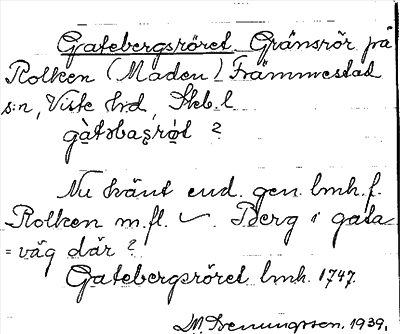 Gatebergsröret Gränsrör på
Rolken (Maden) Främmestad
s:n, Viste hd, Skb. l.
gàtəbaʂrø̀t ?
Nu känt end. gen. lmh. f.
Rolken m. fl. Berg i gata
= väg där ?
Gatebergsröret lmh. 1747.
1939.